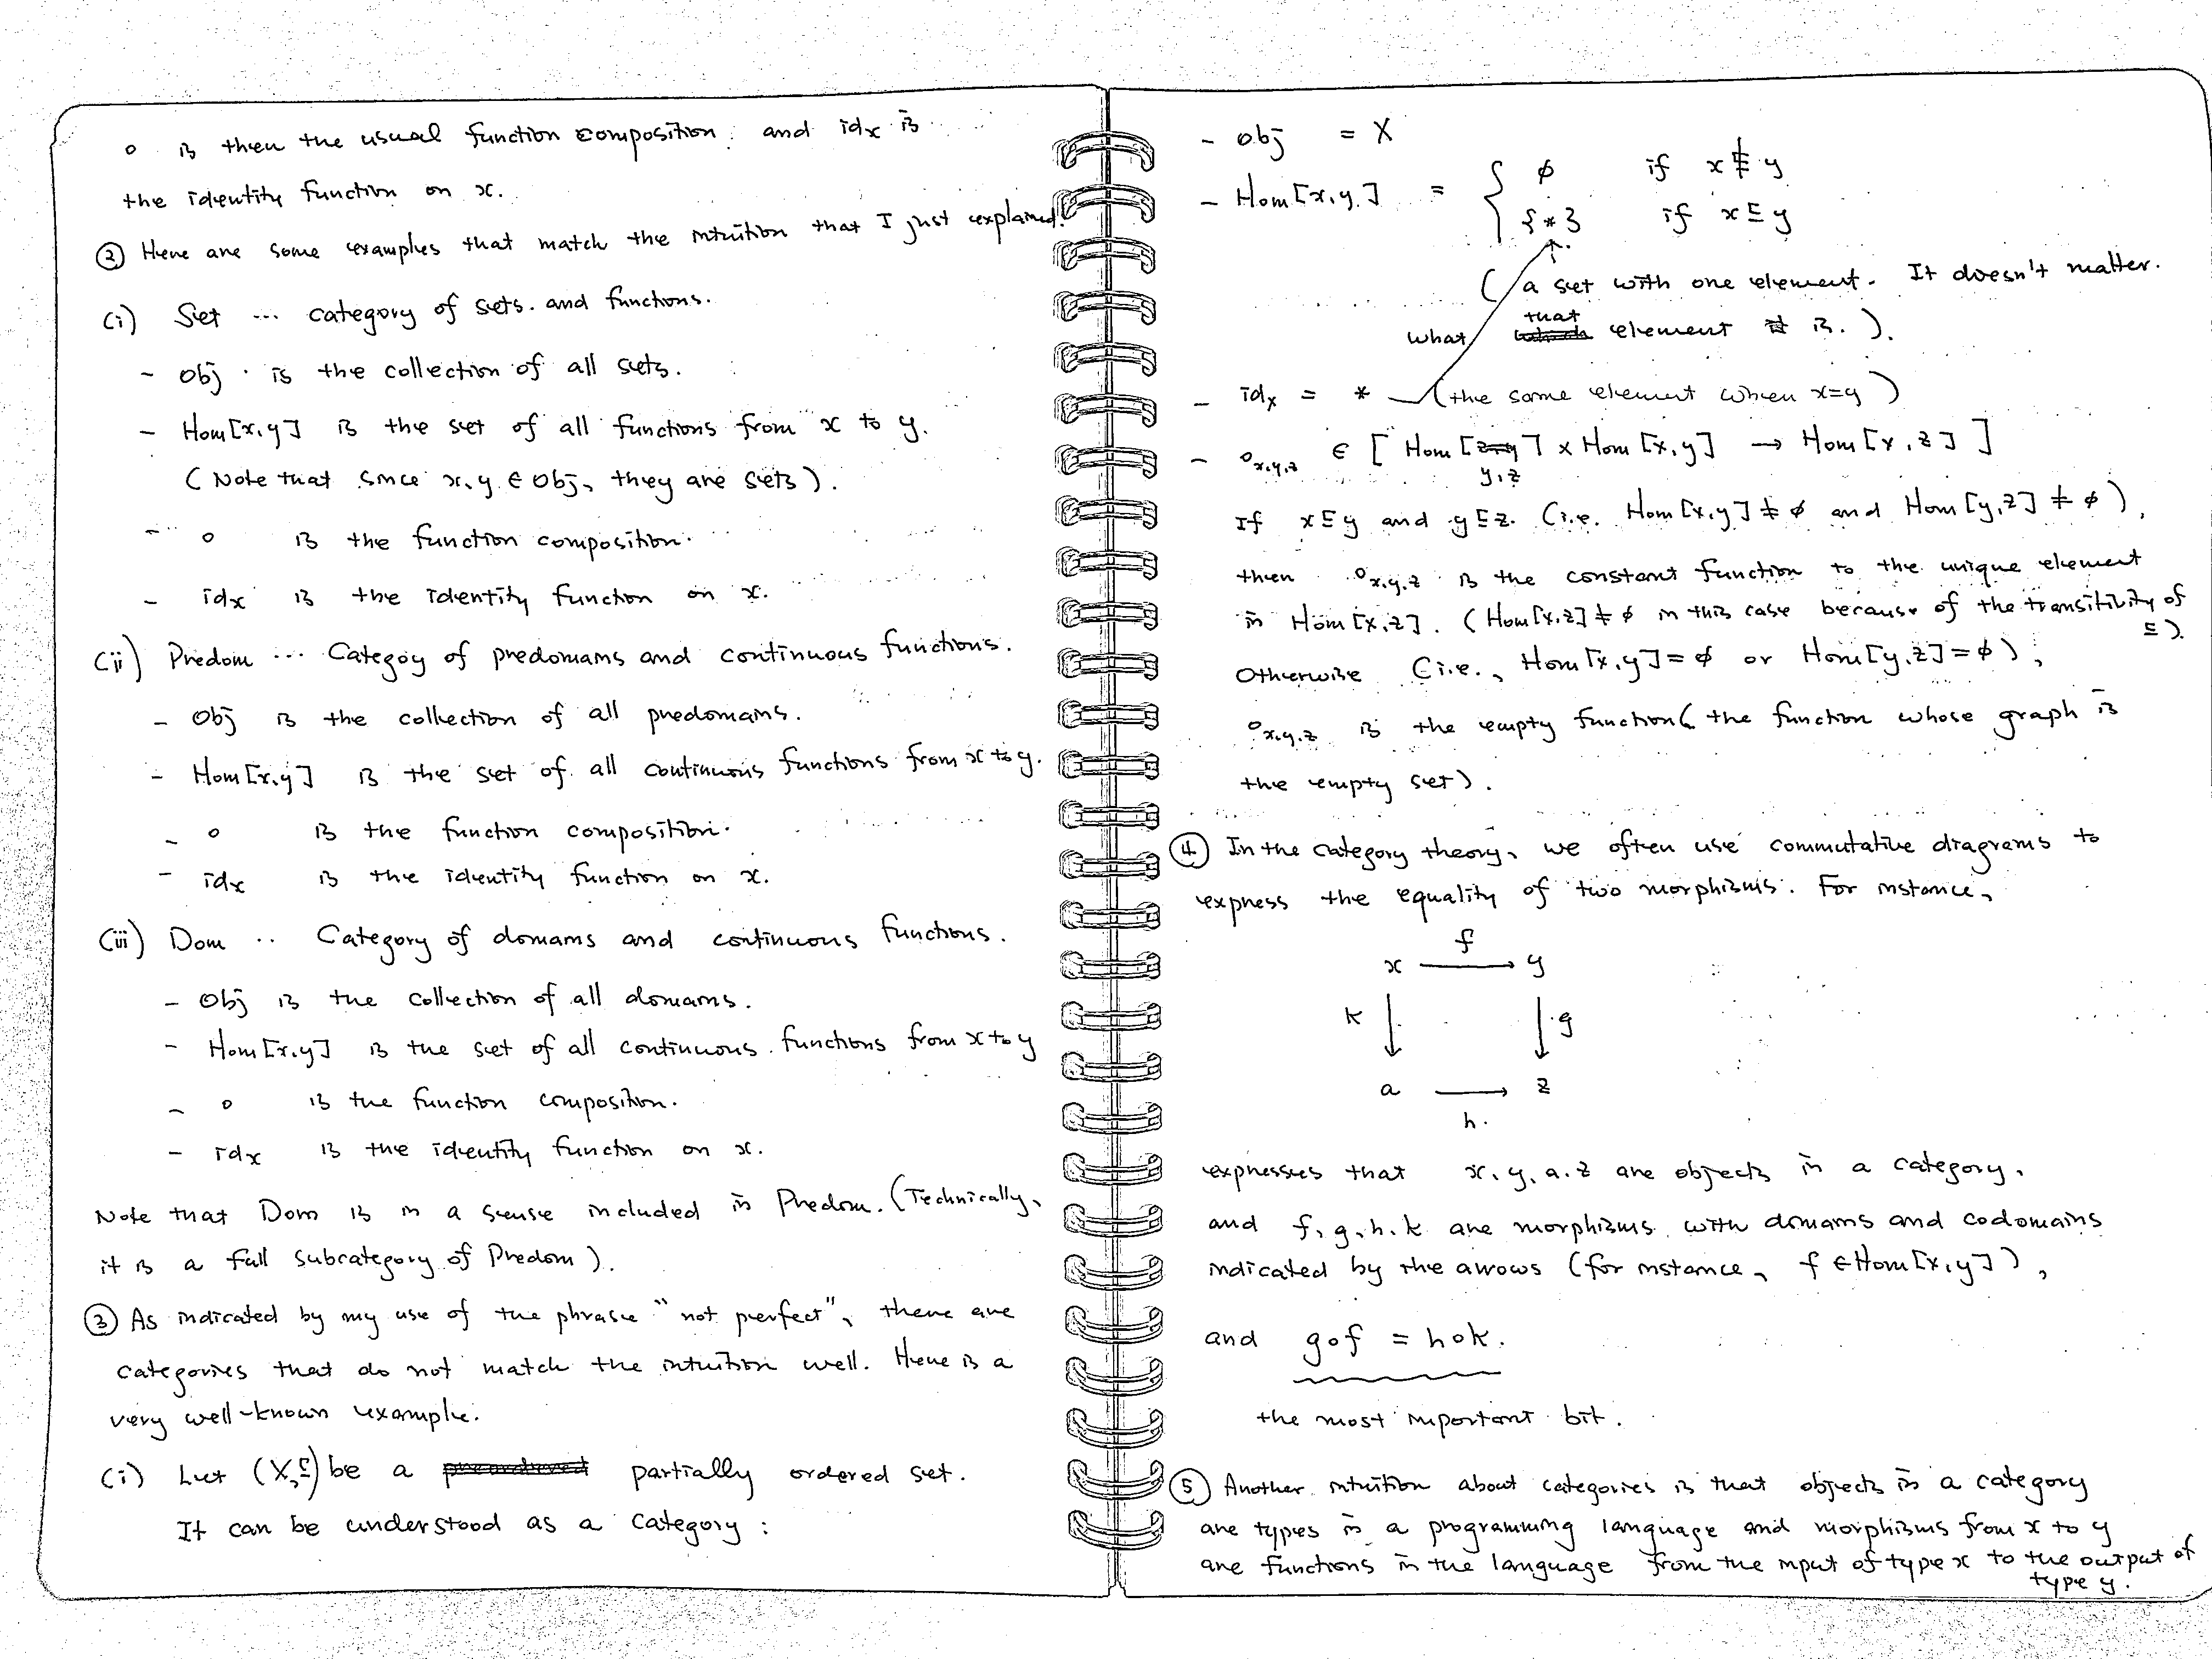 ∘ is then the usual function composition. and idx is
the identity function on x.
② Here are some examples that match the intuition that I just explained.
(i) Set ... category of sets and functions.
- Obj is the collection of all sets.
- Hom[x,y] is the set of all functions from x to y.
(Note that since x,y ∈ Obj, they are sets).
- ∘ is the function composition.
- idx is the identity function on x.
(ii) Predom ... Categoy of predomains and continuous functions.
- Obj is the collection of all predomains.
- Hom[x,y] is the set of all continuous functions from x to y.
- ∘ is the function composition.
- idx is the identity function on x.
(iii) Dom .. Category of domains and continuous functions.
- Obj is the collection of all domains.
- Hom[x,y] is the set of all continuous functions from x to y
- ∘ is the function composition.
- idx is the identity function on x.
Note that Dom is in a sense included in Predom. (Technically,
it is a full subcategory of Predom).
③ As indicated by my use of the phrase "not perfect", there are
categories that do not match the intuition well. Here is a
very well-known example.
(i) Let (X,⊑) be a partially ordered set.
It can be understood as a category:
- Obj = X
- Hom[x,y] = { ∅ if x ⋢ y
{*} if x ⊑ y
(a set with one element. It doesn't matter.
what that element is.).
- idx = * (the same element when x=y)
- ∘x,y,z ∈ [ Hom[y,z] × Hom[x,y] → Hom[x,z] ]
If x ⊑ y and y ⊑ z. (i.e. Hom[x,y] ≠ ∅ and Hom[y,z] ≠ ∅),
then ∘x,y,z is the constant function to the unique element
in Hom[x,z]. (Hom[x,z] ≠ ∅ in this case because of the transitivity of
⊑).
Otherwise (i.e., Hom[x,y]=∅ or Hom[y,z]=∅),
∘x,y,z is the empty function (the function whose graph is
the empty set).
④ In the category theory, we often use commutative diagrams to
express the equality of two morphisms. For instance,
f
x → y
k ↓ ↓ g
a → z
h.
expresses that x, y, a, z are objects in a category,
and f, g, h, k are morphisms with domains and codomains
indicated by the arrows (for instance, f ∈ Hom[x,y]),
and g∘f = h∘k.
the most important bit.
⑤ Another intuition about categories is that objects in a category
are types in a programming language and morphisms from x to y
are functions in the language from the input of type x to the output of
type y.